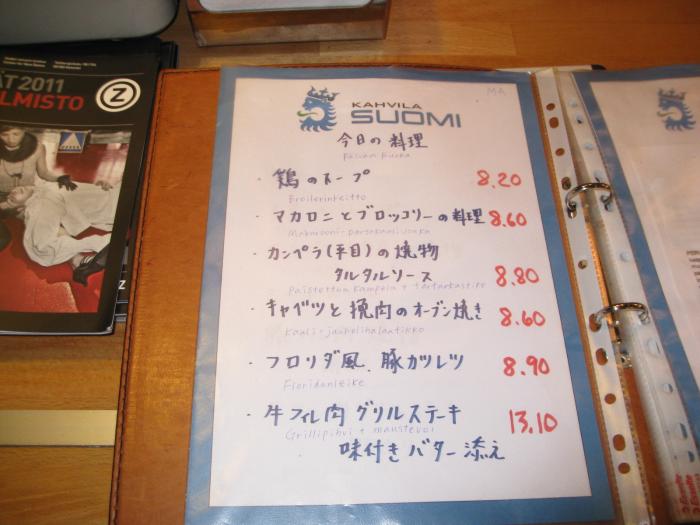 ÄT 2011
LMISTO
Z
MA
KAHVILA
SUOMI
今日の料理
Päivän Ruoka
・鶏のスープ 8.20
Broilerinkeitto
・マカロニとブロッコリーの料理 8.60
Makarooni-parsakaalivuoka
・カンペラ(平目)の焼物
タルタルソース 8.80
Paistettua Kampela + tartarkastike
・キャベツと挽肉のオーブン焼き 8.60
Kaali-jauhelihalaatikko
・フロリダ風、豚カツレツ 8.90
Floridanleike
・牛フィレ肉グリルステーキ 13.10
Grillipihvi + maustevoi
味付きバター添え